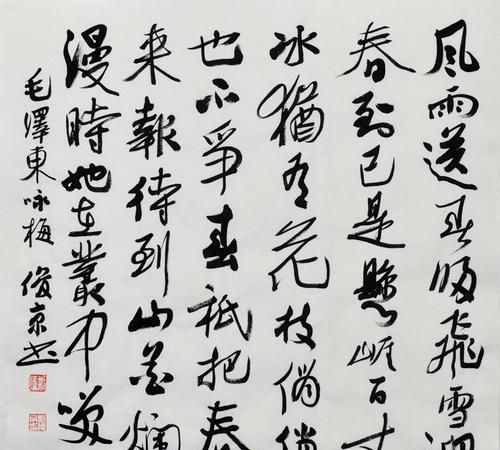 风雨送春归飛雪迎
春到已是懸崕百丈
冰猶有花枝俏俏
也不爭春祗把春
来報待到山花爛
漫時她在叢中笑
毛澤東咏梅 俊京书